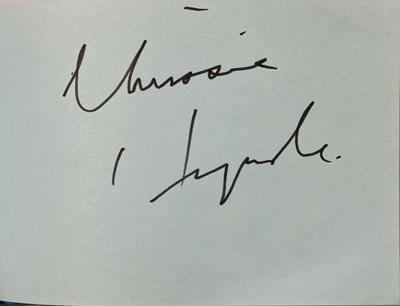 Chrissie
Hynde.